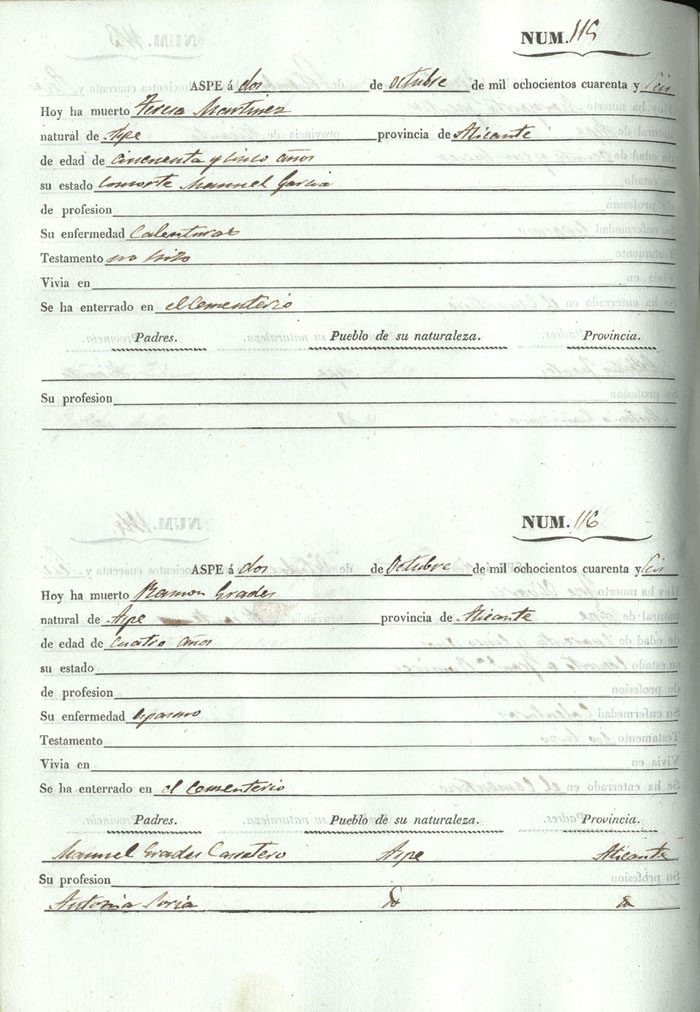 NUM. 115
ASPE á dos de octubre de mil ochocientos cuarenta y seis
Hoy ha muerto Teresa Martinez
natural de Aspe provincia de Alicante
de edad de cincuenta y cinco años
su estado consorte Manuel Garcia
de profesion
Su enfermedad Calenturas
Testamento no hizo
Vivia en
Se ha enterrado en el Cementerio
Padres. Pueblo de su naturaleza. Provincia.
Su profesion
NUM. 116
ASPE á dos de Octubre de mil ochocientos cuarenta y seis
Hoy ha muerto Ramon Grades
natural de Aspe provincia de Alicante
de edad de cuatro años
su estado
de profesion
Su enfermedad espasmo
Testamento
Vivia en
Se ha enterrado en el cementerio
Padres. Pueblo de su naturaleza. Provincia.
Manuel Grades Carretero Aspe Alicante
Su profesion
Antonia Soria